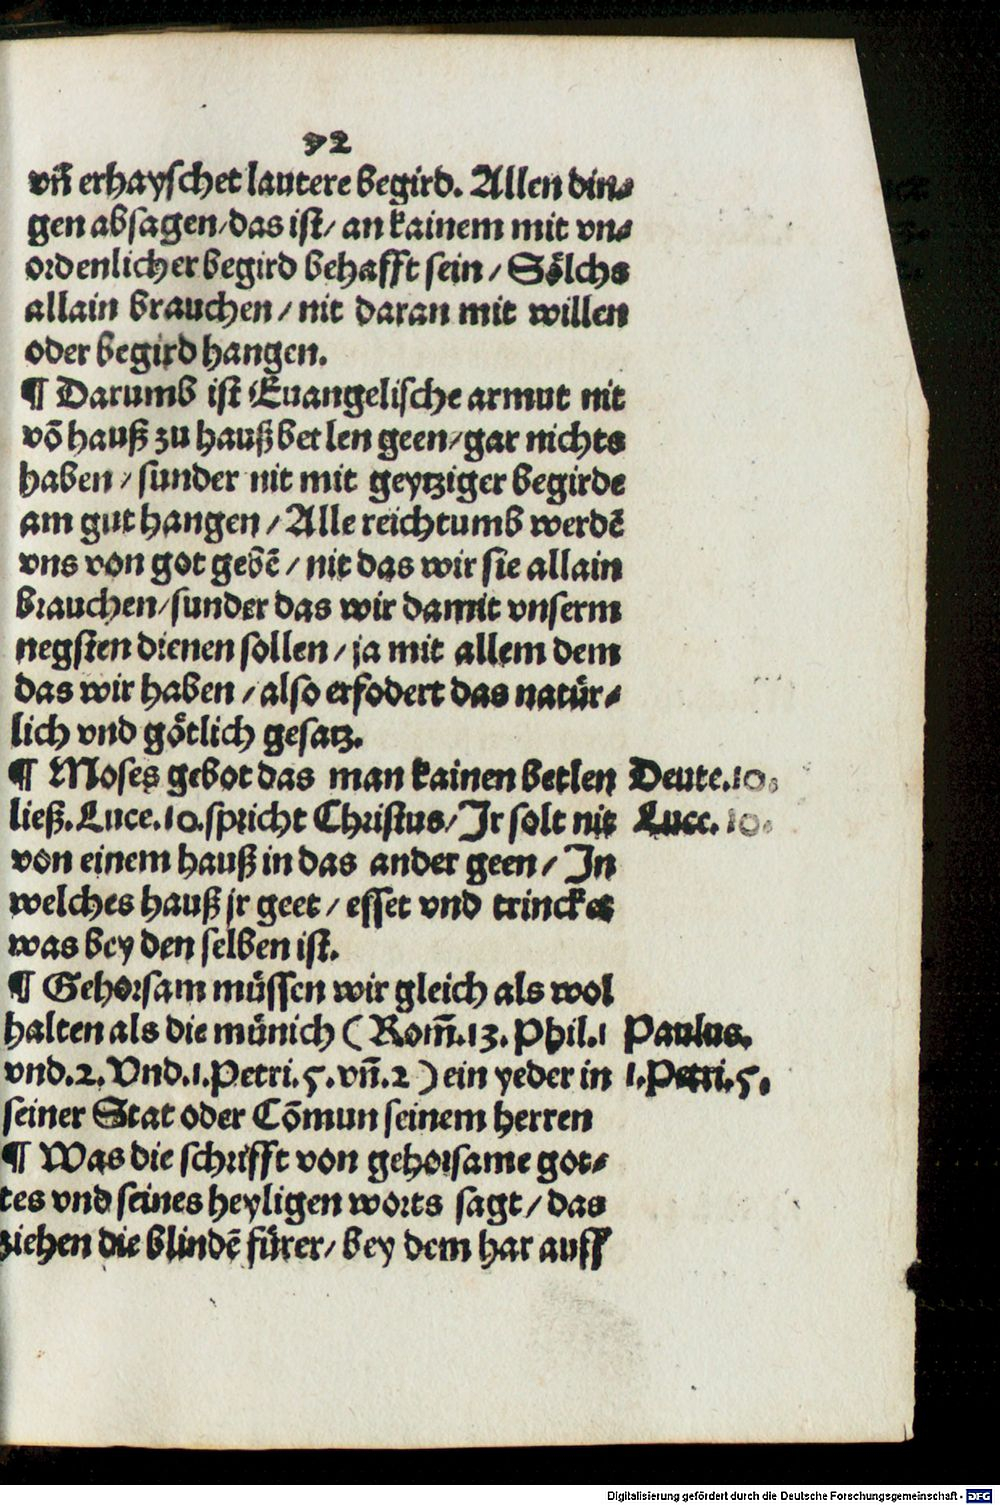 92
vñ erhayschet lautere begird. Allen din⸗
gen absagen/das ist/ an kainem mit vn⸗
ordenlicher begird behafft sein / Soͤlchs
allain brauchen / nit daran mit willen
oder begird hangen.
¶ Darumb ist Euangelische armut nit
võ hauß zu hauß betlen geen/gar nichts
haben / sunder nit mit geytziger begirde
am gut hangen / Alle reichtumb werdẽ
vns von got gebẽ / nit das wir sie allain
brauchen/sunder das wir damit vnserm
negsten dienen sollen / ja mit allem dem
das wir haben / also erfodert das natuͤr⸗
lich vnd goͤtlich gesatz.
¶ Moses gebot das man kainen betlen Deute.10.
ließ. Luce.10.spricht Christus/ Jr solt nit Luce. 10.
von einem hauß in das ander geen / Jn
welches hauß jr geet / esset vnd trincket
was bey den selben ist.
¶ Gehorsam muͤssen wir gleich als wol
halten als die muͤnich ( Rom̃.13. Phil.1 Paulus.
vnd.2. Vnd.1.Petri.5.vñ.2 ) ein yeder in 1.Petri.5.
seiner Stat oder Cõmun seinem herren
¶ Was die schrifft von gehorsame got⸗
tes vnd seines heyligen worts sagt / das
ziehen die blindẽ fuͤrer/ bey dem har auff
Digitalisierung gefördert durch die Deutsche Forschungsgemeinschaft - DFG